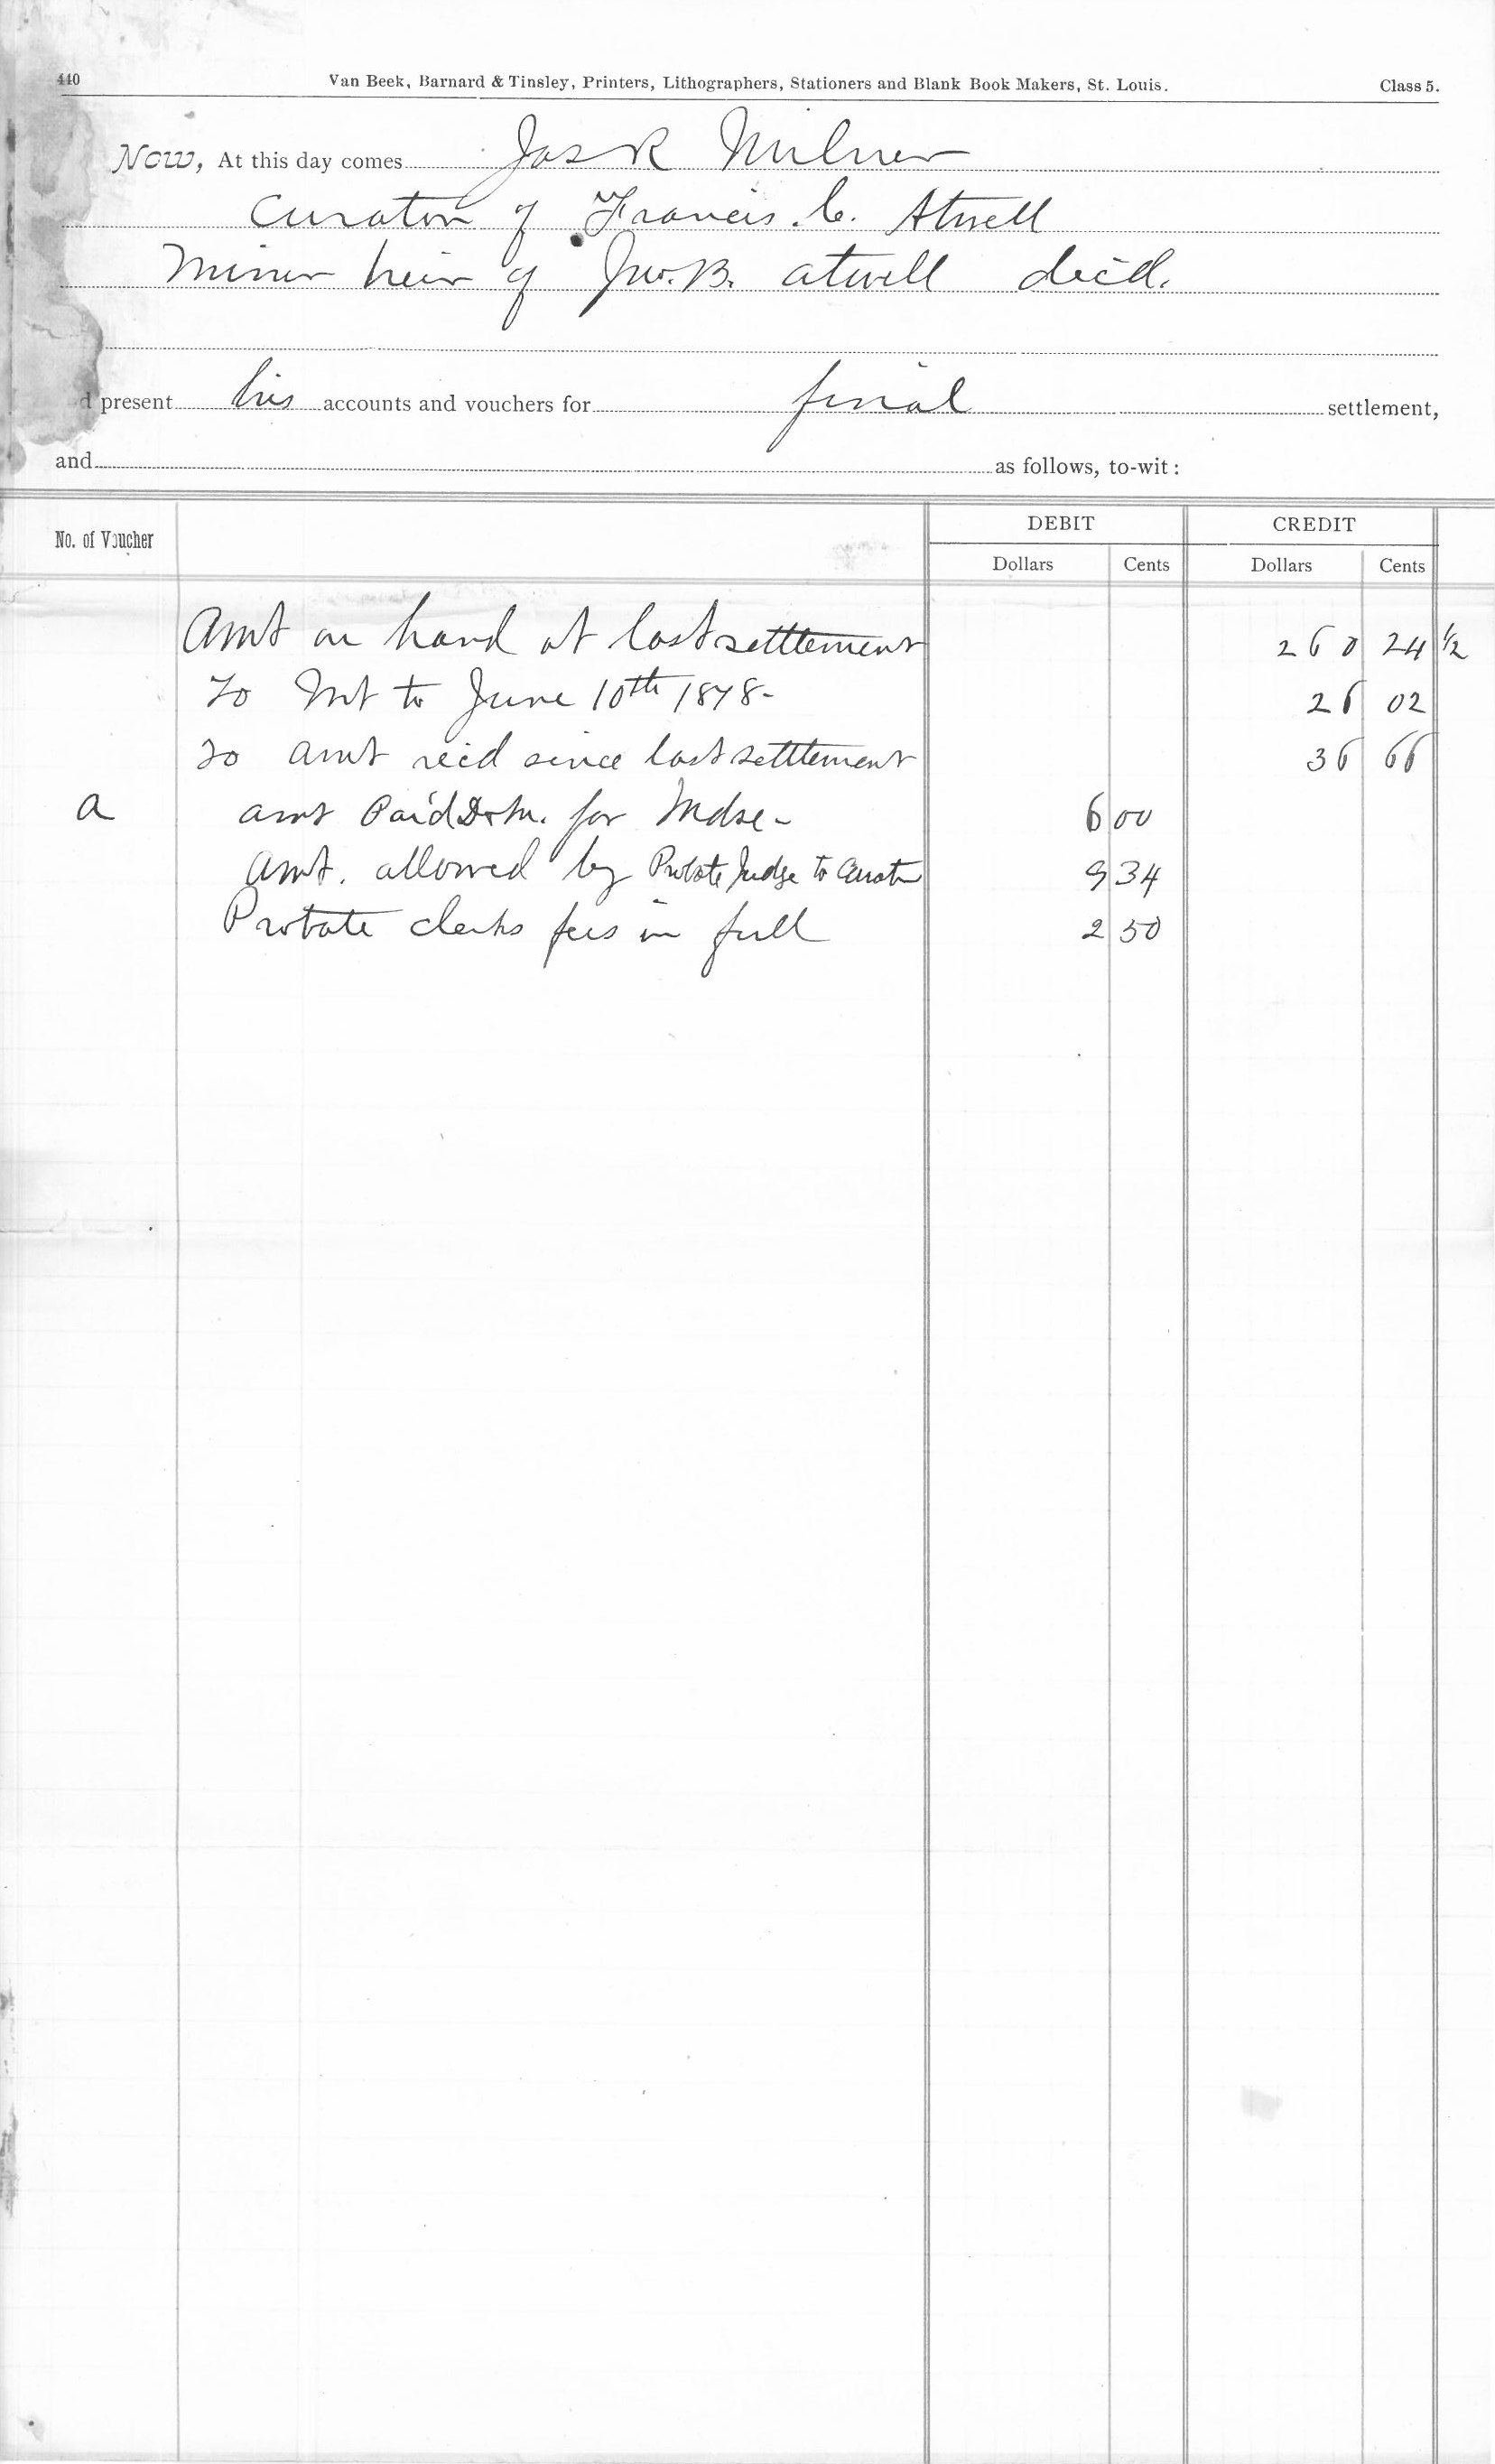 440 Van Beek, Barnard & Tinsley, Printers, Lithographers, Stationers and Blank Book Makers, St. Louis. Class 5.
Now, At this day comes Jas R Milner
Curator of Francis C. Atwell
Minor heir of Jno. B. Atwell dec'd.
d present his accounts and vouchers for final settlement,
and as follows, to-wit:
DEBIT CREDIT
No. of Voucher Dollars Cents Dollars Cents
Amt on hand at last settlement 260 24 1/2
To Int to June 10th 1878- 26 02
To Amt recd since last settlement 36 66
a Amt Paid for Mdse- 6 00
Amt. allowed by Probate Judge to Curator 9 34
Probate clerks fees in full 2 50